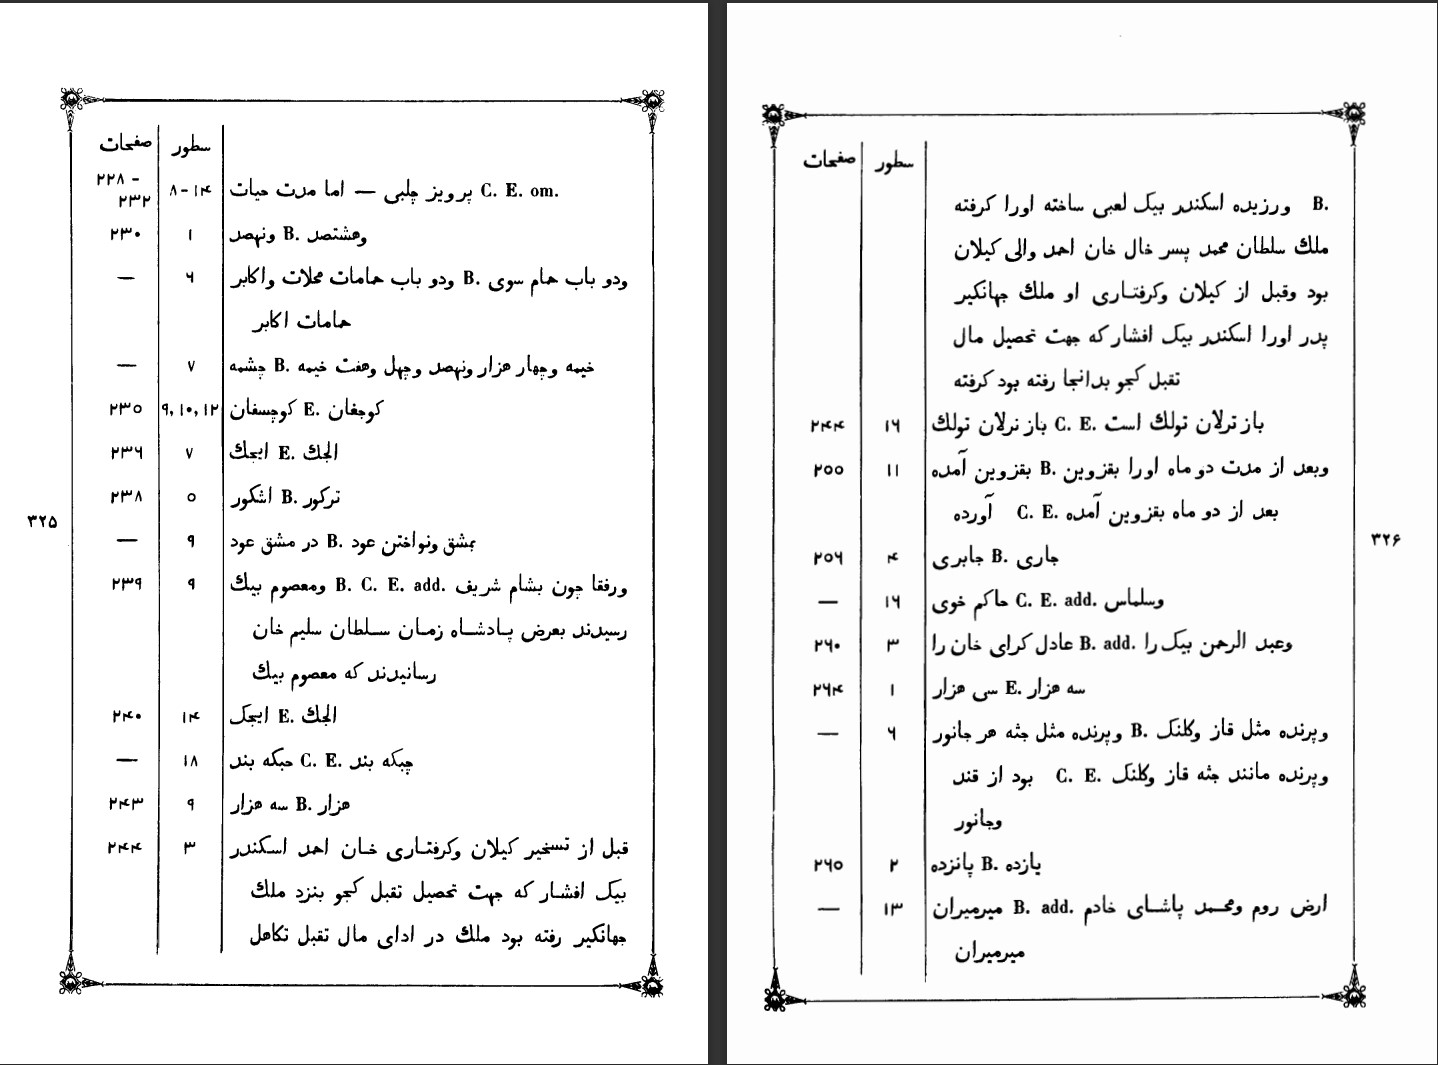 صفحات سطور
۲۲۸ - ۸ - ۱۴ پرویز چلبی — اما مدت حیات C. E. om.
۲۳۲
۲۳۰ ۱ ونهصد B. وهشتصد
— ۶ ودو باب حمامات محلات واکابر B. ودو باب حمام سوی
حمامات اکابر
— ۷ چشمه B. خیمه وچهار هزار ونهصد وچهل وهفت خیمه
۲۳۵ ۹, ۱۰, ۱۲ کوچسفان E. کوجفان
۲۳۶ ۷ ایجك E. الجك
۲۳۸ ۵ اشکور B. ترکور
— ۹ در مشق عود B. بمشق ونواختن عود
۲۳۹ ۹ ومعصوم بیك B. C. E. add. ورفقا چون بشام شریف
رسیدند بعرض پادشاه زمان سلطان سلیم خان
رسانیدند که معصوم بیك
۲۴۰ ۱۴ ایجك E. الجك
— ۱۸ حبکه بند C. E. چبکه بند
۲۴۳ ۹ سه هزار B. هزار
۲۴۴ ۳ قبل از تسخیر کیلان وکرفتاری خان احمد اسکندر
بیک افشار که جهت تحصیل تقبل کجو بنزد ملك
جهانکیر رفته بود ملك در ادای مال تقبل تکاهل
۳۲۵
صفحات سطور
ورزیده اسکندر بیک لعبی ساخته اورا کرفته B.
ملك سلطان محمد پسر خال خان احمد والی کیلان
بود وقبل از کیلان وکرفتاری او ملك جهانکیر
پدر اورا اسکندر بیک افشار که جهت تحصیل مال
تقبل کجو بدانجا رفته بود کرفته
۲۴۴ ۱۶ باز نرلان تولك C. E. باز ترلان تولك است
۲۵۵ ۱۱ بقزوین آمده B. وبعد از مدت دو ماه اورا بقزوین
آورده C. E. بعد از دو ماه بقزوین آمده
۲۵۶ ۴ جابری B. جاری
— ۱۶ حاکم خوی C. E. add. وسلماس
۲۶۰ ۳ عادل کرای خان را B. add. وعبد الرحمن بیک را
۲۶۴ ۱ سی هزار E. سه هزار
— ۶ وپرنده مثل جثه هر جانور B. وپرنده مثل قاز وکلنک
بود از قند C. E. وپرنده مانند جثه قاز وکلنک
وجانور
۲۶۵ ۲ پانزده B. یازده
— ۱۳ میرمیران B. add. ارض روم ومحمد پاشای خادم
میرمیران
۳۲۶